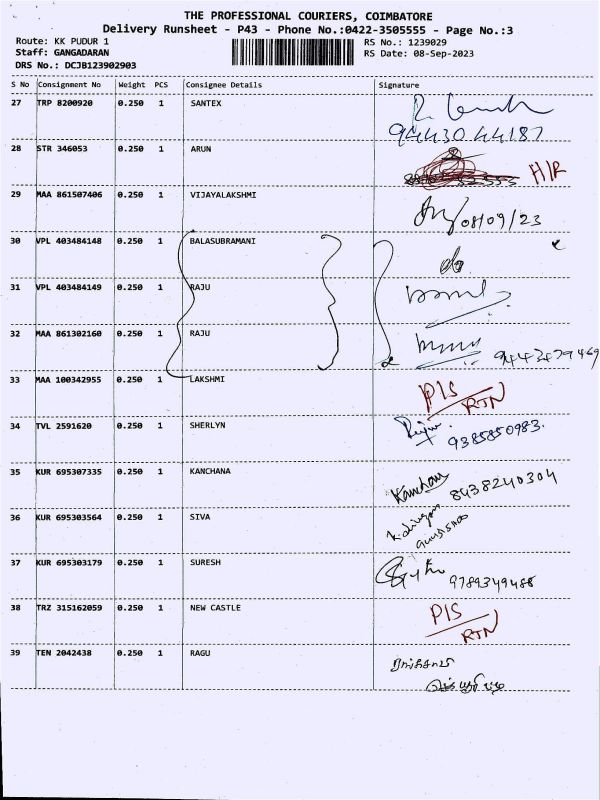 THE PROFESSIONAL COURIERS, COIMBATORE
Delivery Runsheet - P43 - Phone No.:0422-3505555 - Page No.:3
Route: KK PUDUR 1 RS No.: 1239029
Staff: GANGADARAN RS Date: 08-Sep-2023
DRS No.: DCJB123902903
S No Consignment No Weight PCS Consignee Details Signature
27 TRP 8200920 0.250 1 SANTEX
9443044187
28 STR 346053 0.250 1 ARUN
H/R
29 MAA 861507406 0.250 1 VIJAYALAKSHMI
08/09/23
30 VPL 403484148 0.250 1 BALASUBRAMANI
do
31 VPL 403484149 0.250 1 RAJU
32 MAA 861302160 0.250 1 RAJU
9443479469
33 MAA 100342955 0.250 1 LAKSHMI
PIS
RTN
34 TVL 2591620 0.250 1 SHERLYN
9385850983.
35 KUR 695307335 0.250 1 KANCHANA
Kanchan 8438240304
36 KUR 695303564 0.250 1 SIVA
37 KUR 695303179 0.250 1 SURESH
9789349488
38 TRZ 315162059 0.250 1 NEW CASTLE
PIS
RTN
39 TEN 2042438 0.250 1 RAGU